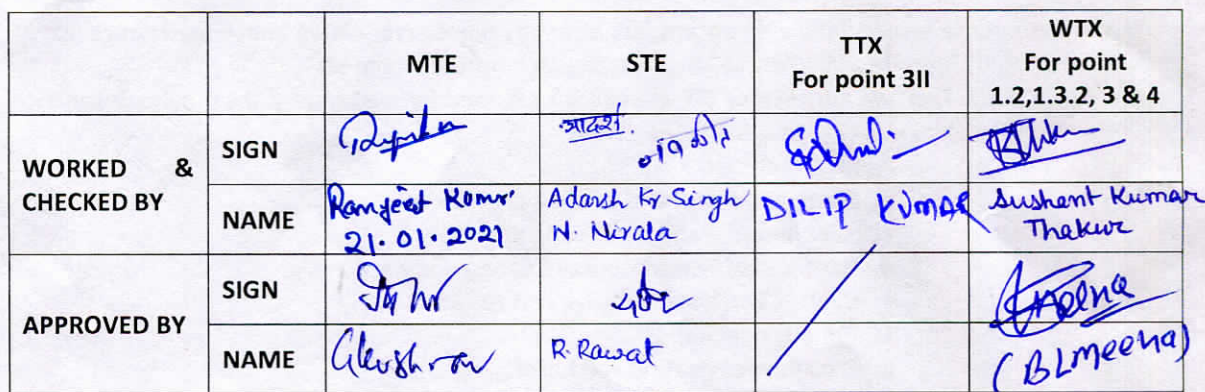 MTE STE TTX For point 3II WTX For point 1.2,1.3.2, 3 & 4
WORKED & CHECKED BY
SIGN आदर्श
NAME Ramjeet Kumr 21.01.2021 Adarsh Kr Singh N. Nirala DILIP KUMAR Sushant Kumar Thakur
APPROVED BY
SIGN Meena
NAME R. Rawat (BLmeena)